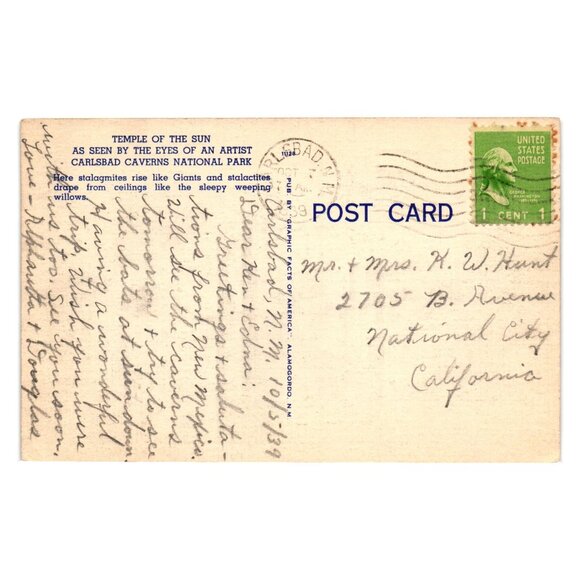 TEMPLE OF THE SUN
AS SEEN BY THE EYES OF AN ARTIST
CARLSBAD CAVERNS NATIONAL PARK
Here stalagmites rise like Giants and stalactites
drape from ceilings like the sleepy weeping
willows.
Carlsbad, N. M. 10/5/39
Dear Ken & Edna:
Greetings & saluta-
tions from New Mexico.
Will see the caverns
tomorrow & try to see
the bats at sundown.
Having a wonderful
trip. Wish you were
with us too. See you soon,
Love - & Douglas
PUB. BY "GRAPHIC FACTS OF AMERICA", ALAMOGORDO, N.M.
CARLSBAD, N.M.
OCT
POST CARD
UNITED
STATES
POSTAGE
GEORGE
WASHINGTON
1 CENT 1
Mr. & Mrs. K. W. Hunt
2705 B. Avenue
National City
California